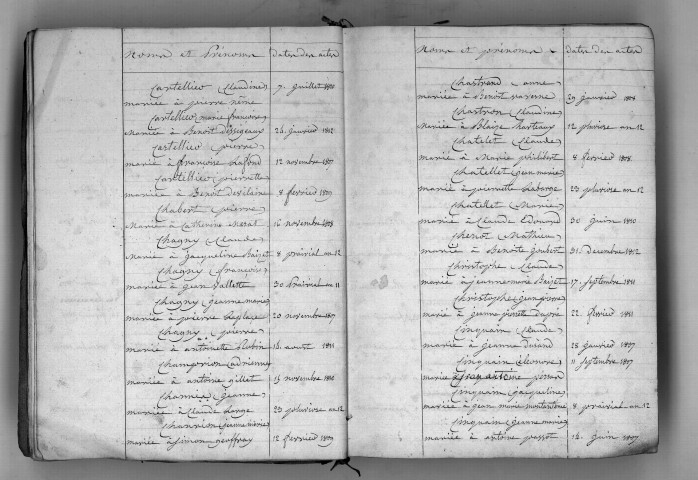 Noms et Prénoms dates des actes
Castellico (Claudine)
mariée à pierre néne 7 Juillet 1810
Castellico (marie françoise)
Mariée à Benoit 24 Janvier 1812
Castellico (pierre)
marié à françoise Lafond 12 novembre 1807
Castellico (pierrette)
mariée à Benoit Devilaine 8 fevrier 1809
Chabert (pierre)
Marié à Catherine Morat 16 novembre 1808
Chagny (Claude)
Marié à Jacqueline Baizet 8 prairial an 12
Chagny (françois)
marié à Jean Vallette 30 Prairial an 11
Chagny (jeanne marie)
mariée à pierre Laplace 20 novembre 1807
Chagny (pierre)
marié à antoinette Robin 14 aoust 1811
Champrion (adrienne)
mariée à antoine gillet 15 novembre 1808
Charmes (Jeanne)
mariée à Claude Large 23 pluviose an 12
Chanrion (jeanne marie)
mariée à Simon Geoffray 12 fevrier 1809
Noms et prénoms dates des actes
Chastrand (anne)
mariée à Benoit Varenne 29 Janvier 1808
Chastron (Claudine)
Mariée à Blaise Marteaux 12 pluviose an 12
Chatelet (Claude)
marié à Marie philibert 8 fevrier 1808
Chatellet (jean marie)
marié à pierrette Labarge 23 pluviose an 12
Chatellet (Marie)
mariée à Claude Edouard 30 Juin 1810
Chenot (Mathieu)
marié à Benoite Joubert 31 Decembre 1812
Christophe (Claude)
marié à jeanne marie Baizet 17 septembre 1811
Christophe (jean pierre)
marié à jeanne pierrette Dupré 22 fevrier 1811
Cinquain (Claude)
marié à Jeanne Durand 28 Janvier 1807
Cinquain (Eléonore) 11 septembre 1807
mariée à
Cinquain (jacqueline)
mariée à jean marie montantome 8 prairial an 12
Cinquain (jeanne marie)
mariée à antoine passot 14 Juin 1807